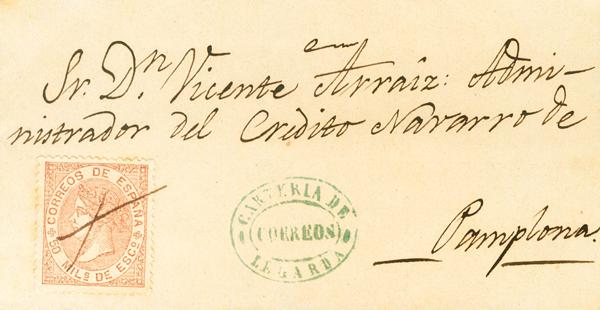 Sr. Dn. Vicente Arraiz: Admi-
nistrador del Crédito Navarro de
Pamplona.
CORREOS DE ESPAÑA
50 MILS DE ESCO
CARTERIA DE
CORREOS
LEGARDA